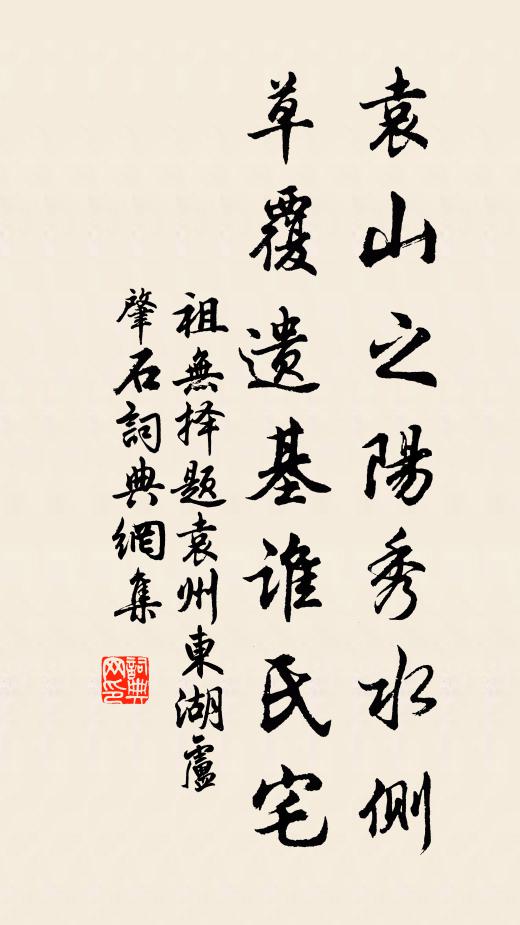 袁山之陽秀水側
草覆遺基谁氏宅
祖無择题袁州東湖盧
肇石詞典網集
詞典网印